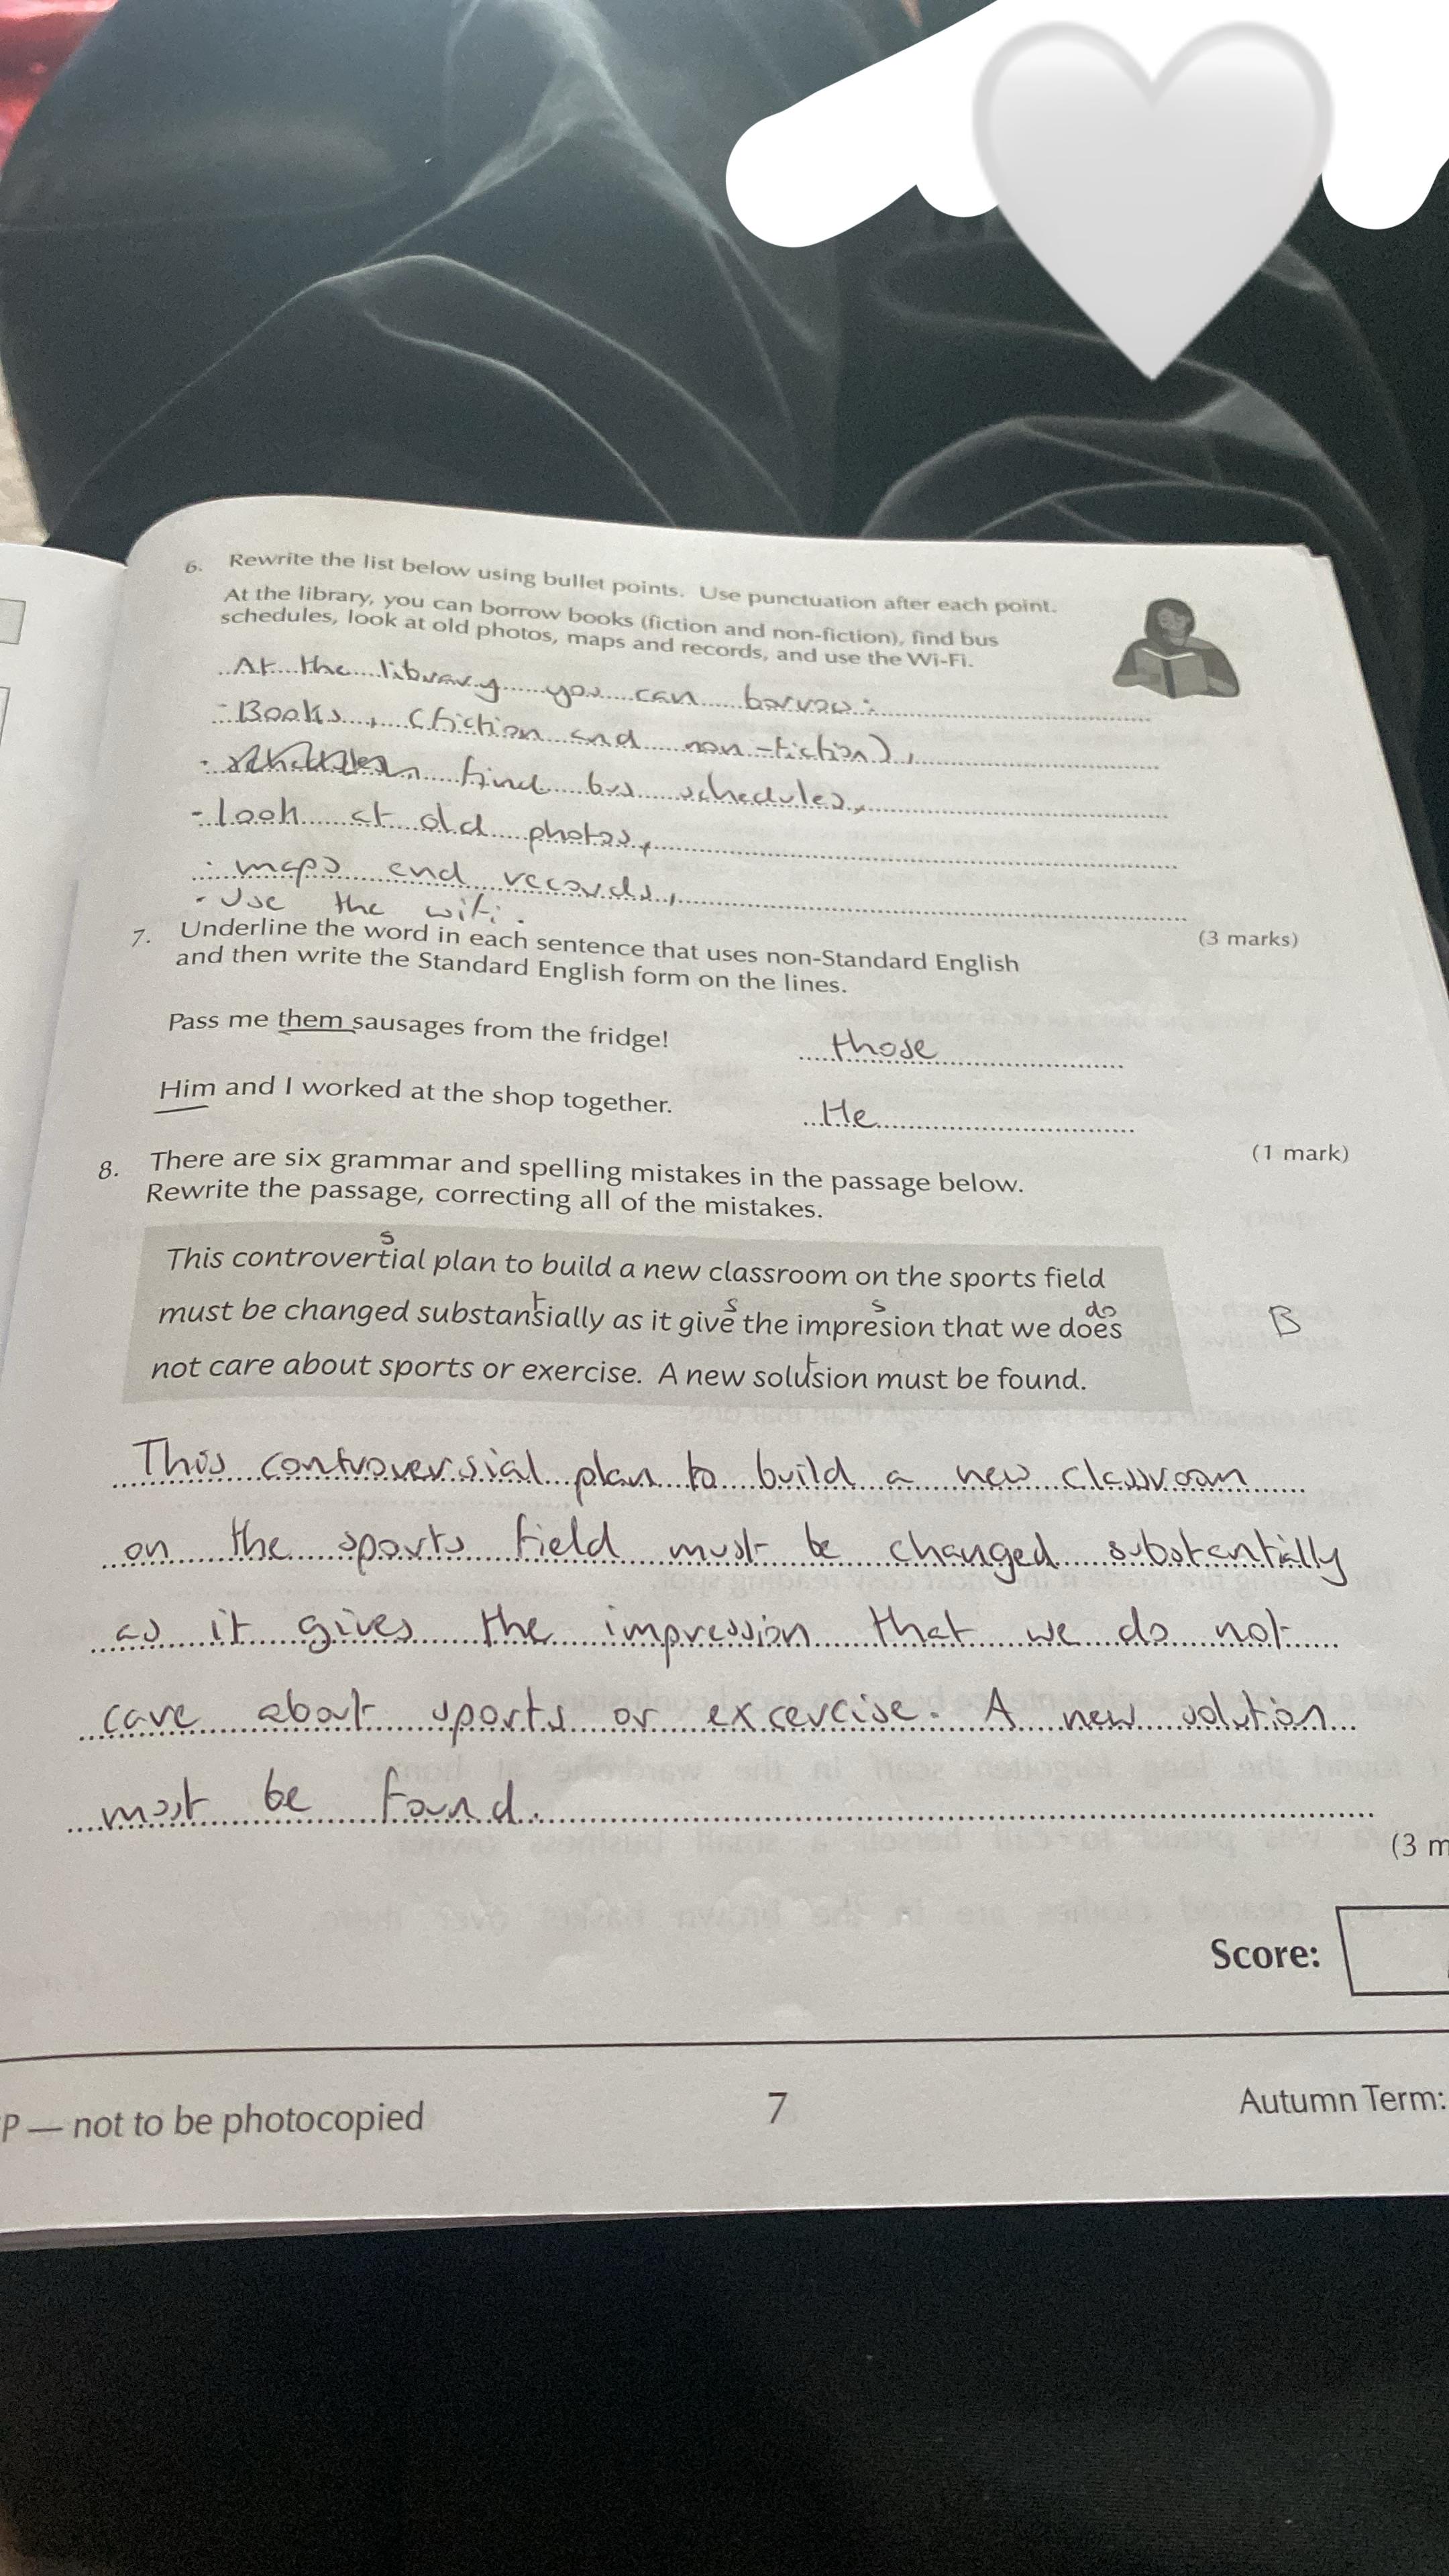 6. Rewrite the list below using bullet points. Use punctuation after each point.
At the library, you can borrow books (fiction and non-fiction), find bus
schedules, look at old photos, maps and records, and use the Wi-Fi.
At the library you can borrow:
- Books, (fiction and non-fiction),
- find bus schedules,
- look at old photos,
- maps and records,
- Use the wifi.
(3 marks)
7. Underline the word in each sentence that uses non-Standard English
and then write the Standard English form on the lines.
Pass me them sausages from the fridge! those
Him and I worked at the shop together. He
(1 mark)
8. There are six grammar and spelling mistakes in the passage below.
Rewrite the passage, correcting all of the mistakes.
s
This controvertial plan to build a new classroom on the sports field
t s s do
must be changed substansially as it give the impresion that we does
B
t
not care about sports or exercise. A new solusion must be found.
This controversial plan to build a new classroom
on the sports field must be changed substantially
as it gives the impression that we do not
care about sports or excercise. A new solution
must be found.
(3 m
Score:
P — not to be photocopied
7
Autumn Term: